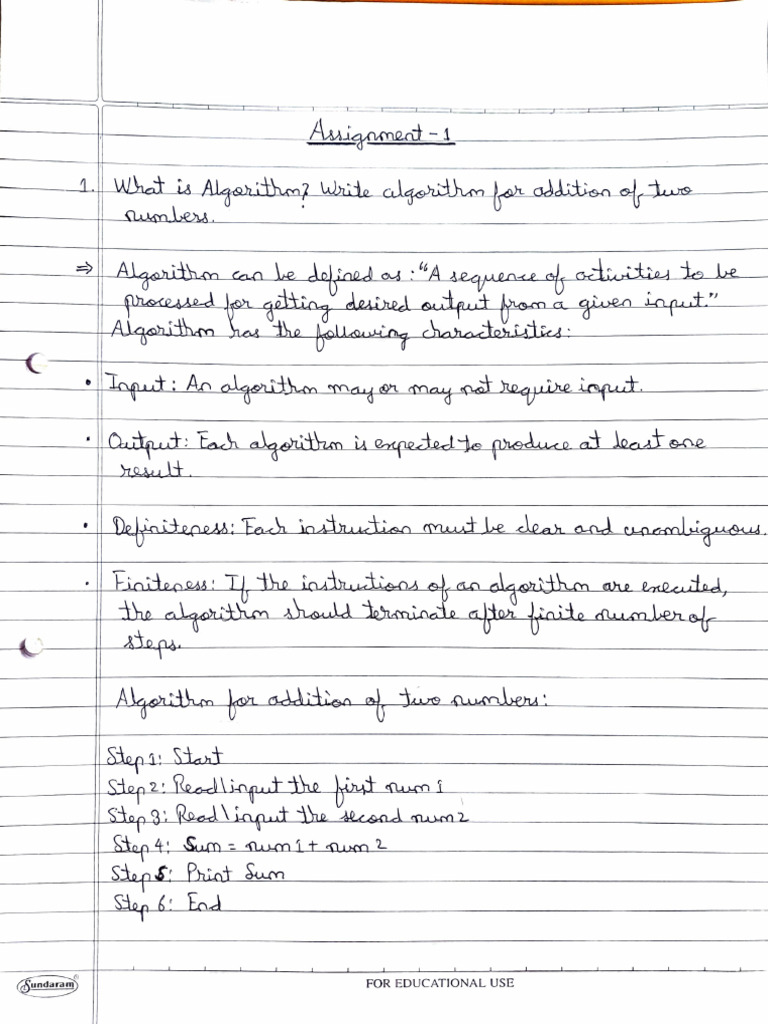 Assignment-1
1. What is Algorithm? Write algorithm for addition of two
numbers.
⇒ Algorithm can be defined as: "A sequence of activities to be
processed for getting desired output from a given input."
Algorithm has the following characteristics:
• Input: An algorithm may or may not require input.
• Output: Each algorithm is expected to produce at least one
result.
• Definiteness: Each instruction must be clear and unambiguous.
• Finiteness: If the instructions of an algorithm are executed,
the algorithm should terminate after finite number of
steps.
Algorithm for addition of two numbers:
Step 1: Start
Step 2: Read\input the first num 1
Step 3: Read\input the second num 2
Step 4: Sum = num 1 + num 2
Step 5: Print Sum
Step 6: End
Sundaram®
FOR EDUCATIONAL USE